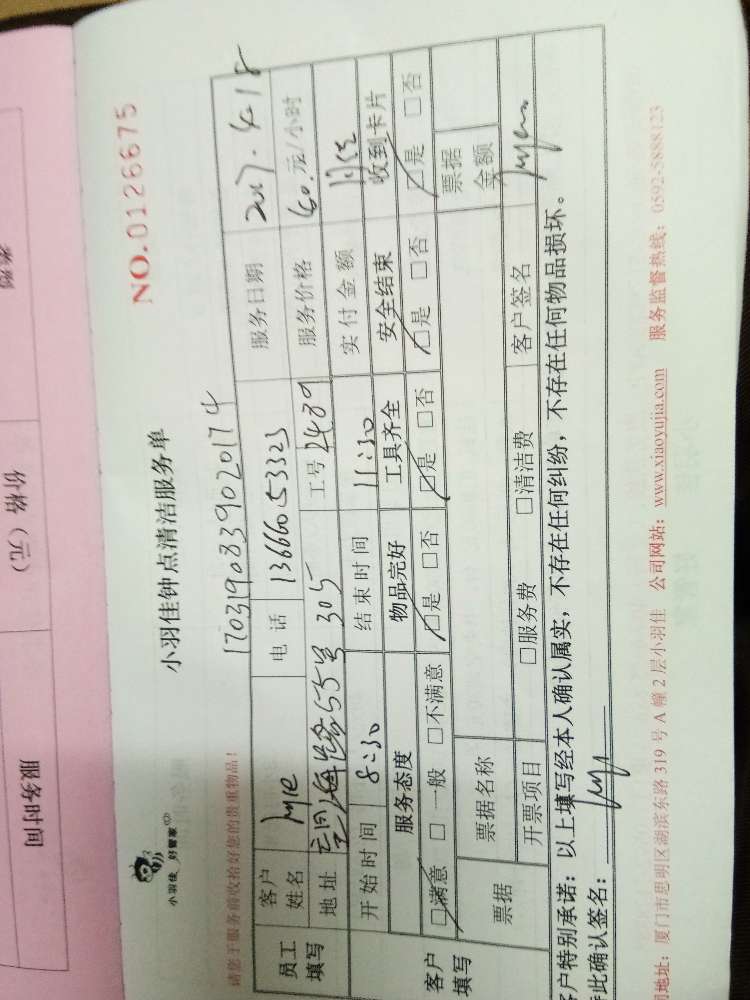 NO.0126675
小羽佳 好管家
小羽佳钟点清洁服务单
17031908339020174
请您于服务前收拾好您的贵重物品!
员工填写 客户姓名 电 话 13666053323 服务日期 2017.4.18
地 址 55号 305 工号 2439 服务价格 60.元/小时
开始时间 8:30 结束时间 11:30 实付金额
客户填写 服务态度 物品完好 工具齐全 安全结束 收到卡片
□满意 □一般 □不满意 □是 □否 □是 □否 □是 □否 □是 □否
票据 票据名称 票据金额
开票项目 □服务费 □清洁费 客户签名
客户特别承诺:以上填写经本人确认属实,不存在任何纠纷,不存在任何物品损坏。
此确认签名:
地址:厦门市思明区湖滨东路 319 号 A 幢 2 层小羽佳 公司网站:www.xiaoyujia.com 服务监督热线:0592-5888123
服务时间 价格(元) 类别